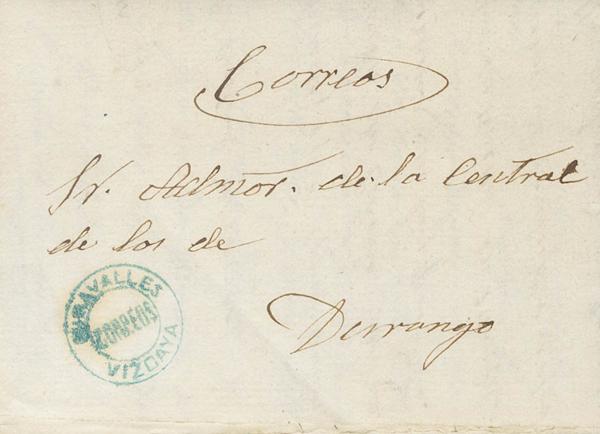 Correos
Sr. Admor. de la Central
de los de
Durango
MIRAVALLES
CORREOS
VIZCAYA